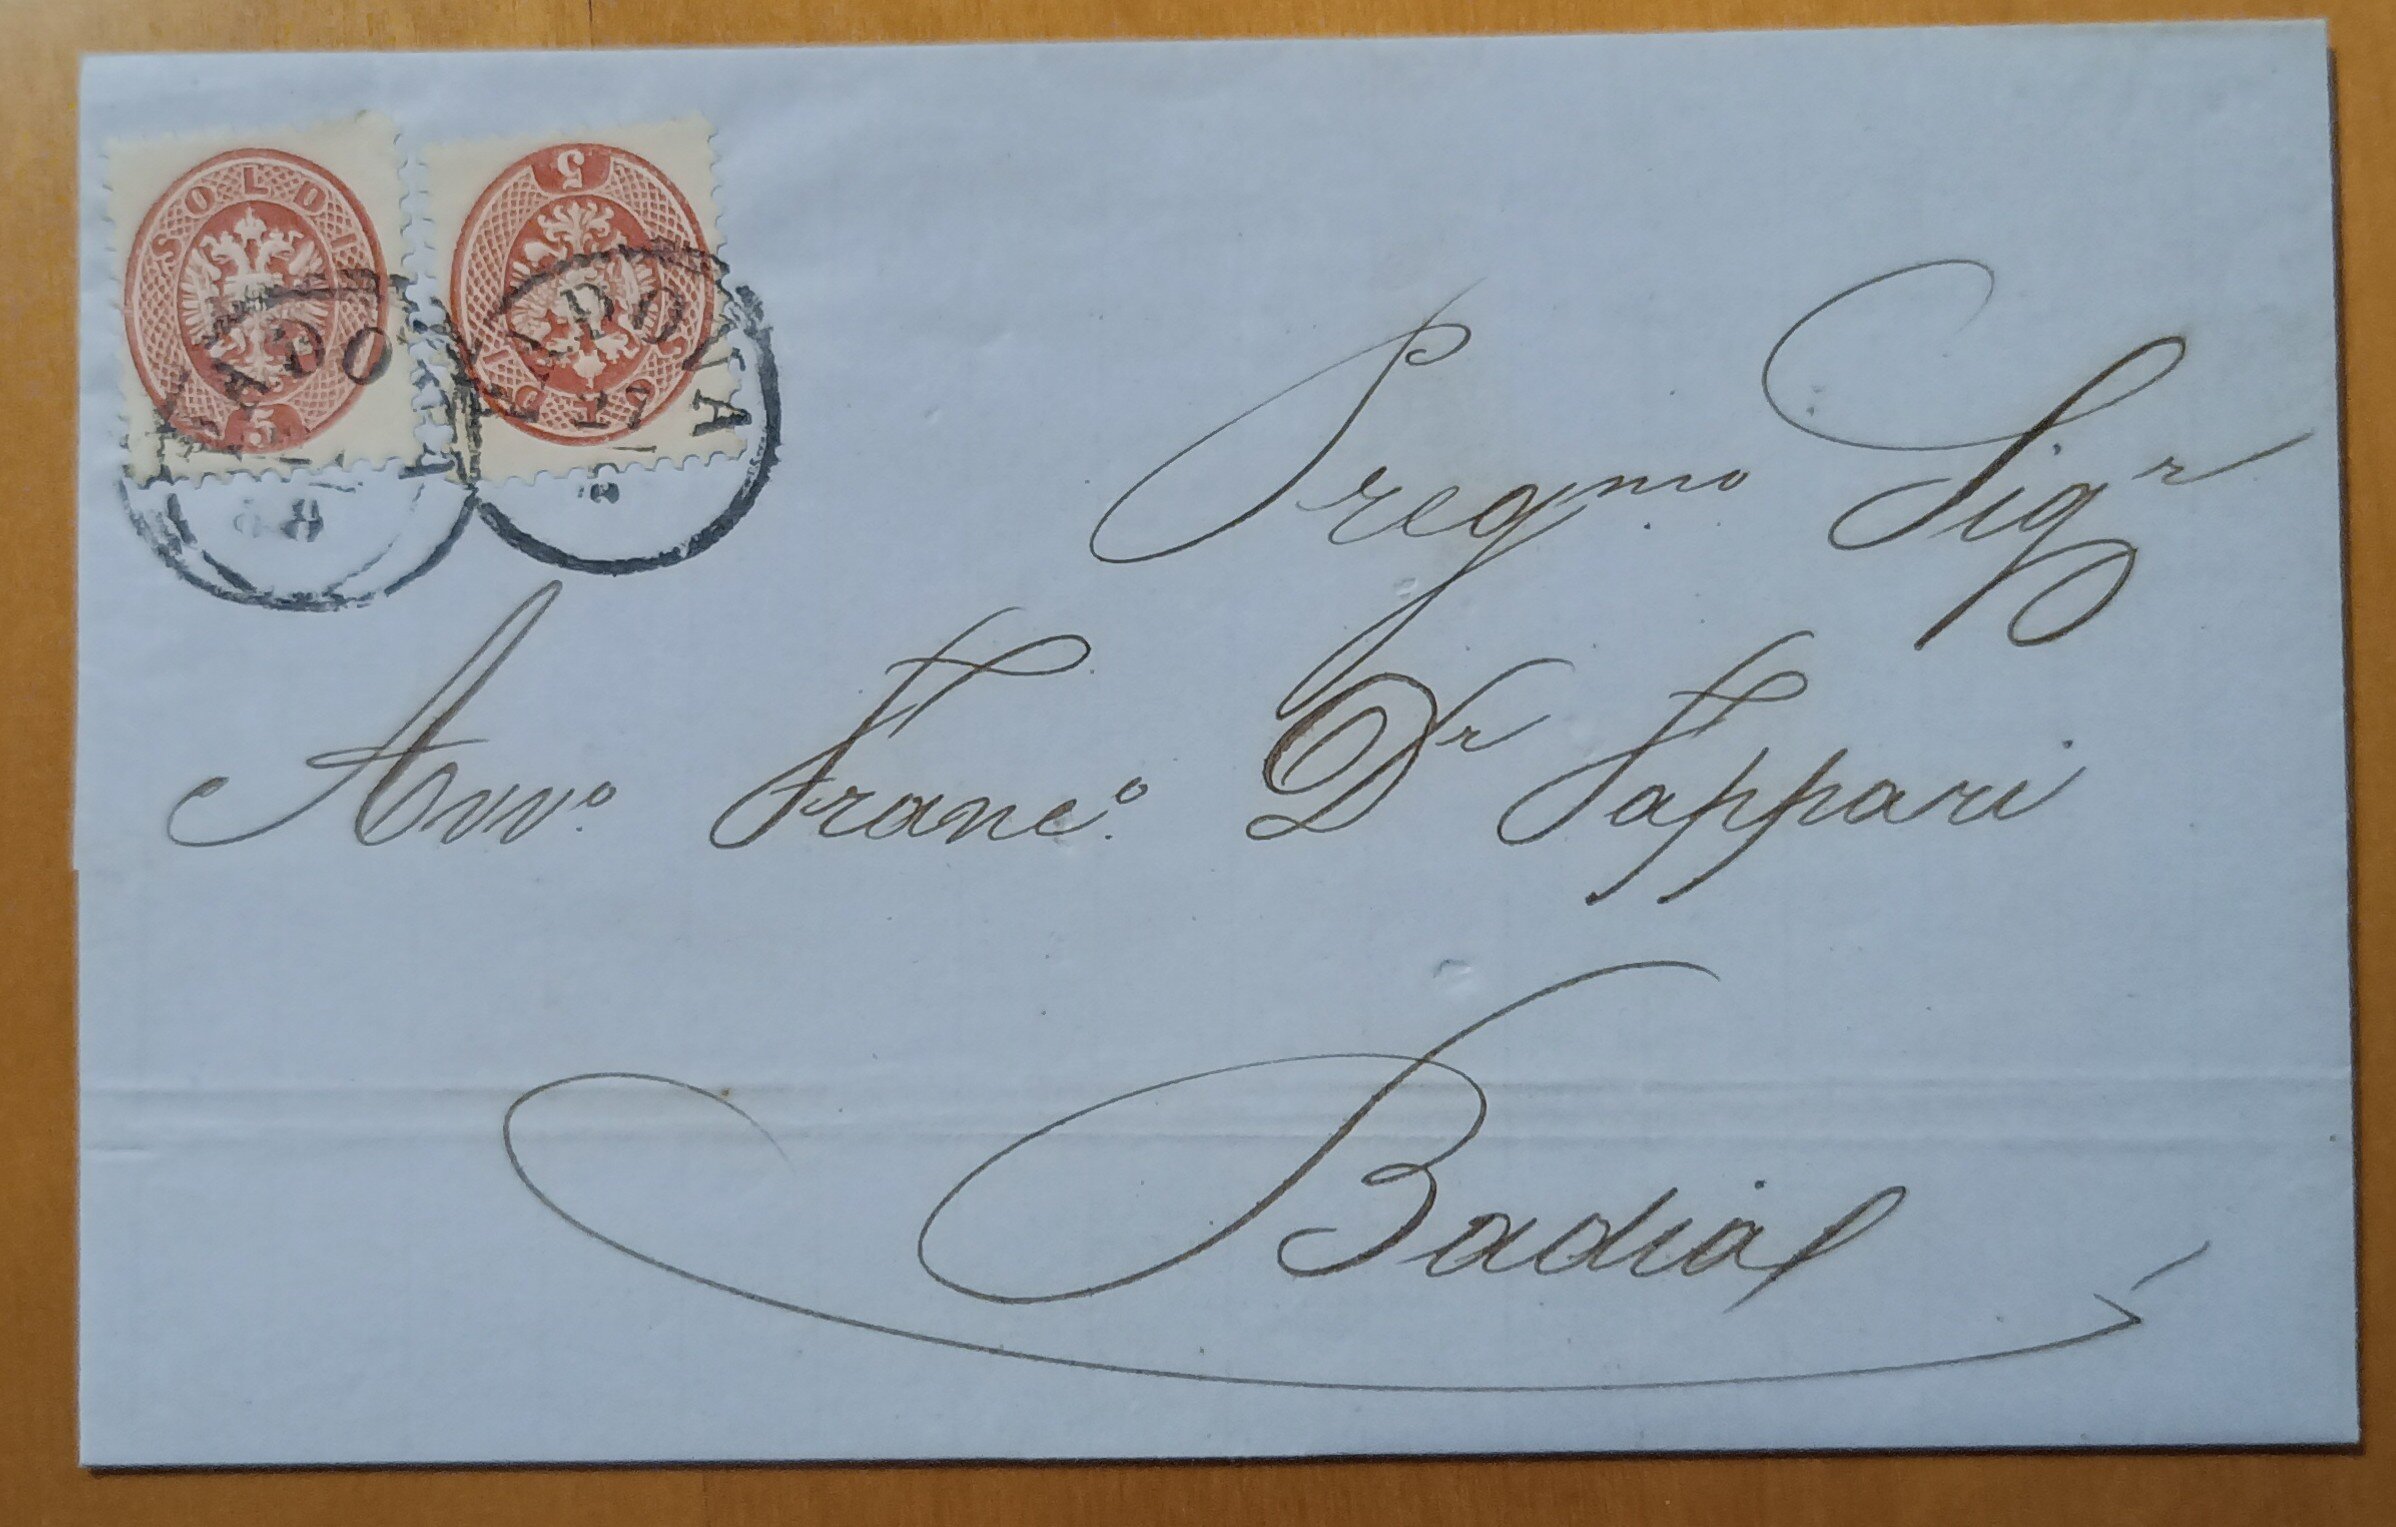 SOLDI
5
5
SOLDI
PADOVA
PADOVA
17
8
Pregmo Sigr
Avvo. Franco. Dr Tappari
Badia